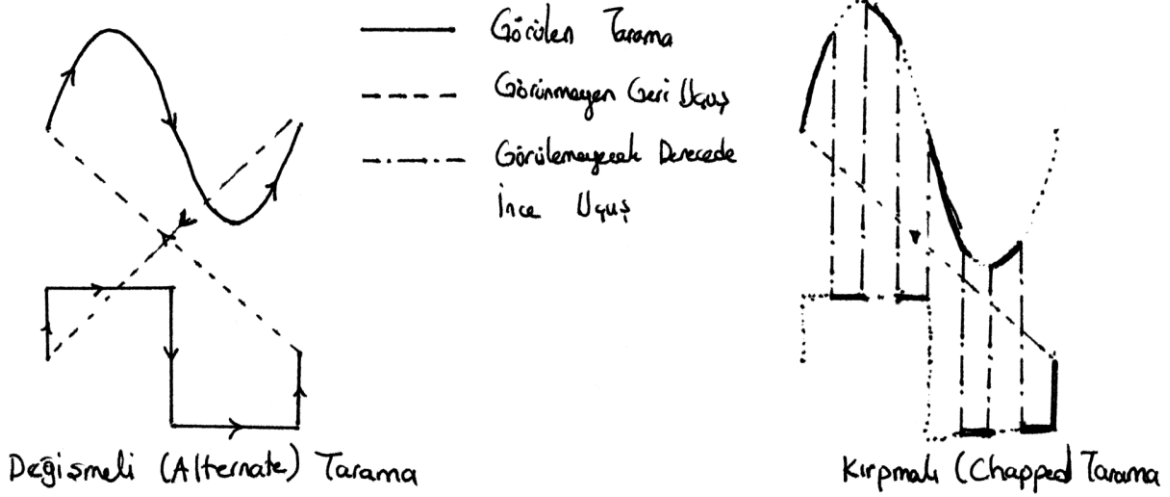 Görülen Tarama
Görünmeyen Geri Uçuş
Görülemeyecek Derecede
İnce Uçuş
Değişmeli (Alternate) Tarama
Kırpmalı (Chapped Tarama